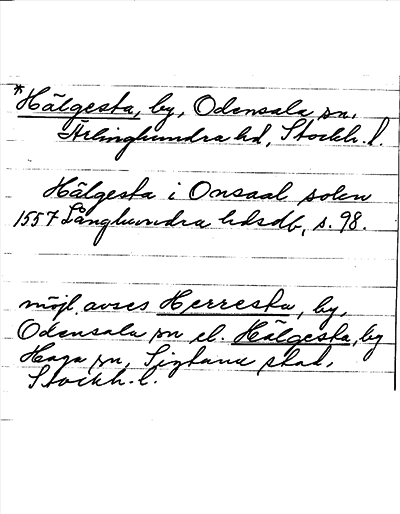 *Hälgesta, by, Odensala sn,
Ärlinghundra hd, Stockh. l.
Hälgesta i Onsaal sokn
1557 Långhundra hdsdb, s. 98.
möjl. avses Herresta, by,
Odensala sn el. Hälgesta, by
Haga sn, Sigtuna stad,
Stockh. l.